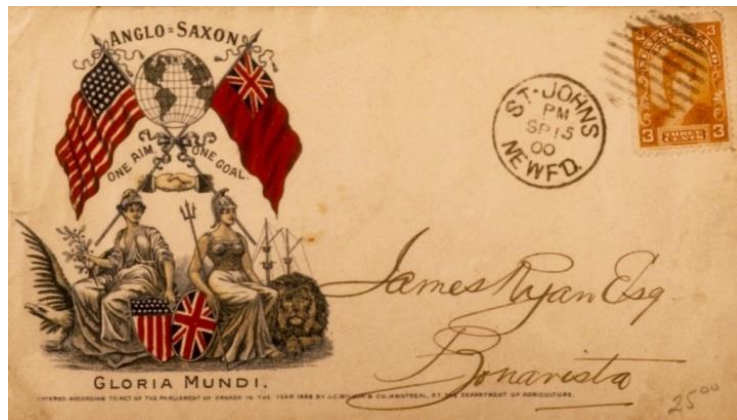 ANGLO=SAXON
ONE AIM ONE GOAL.
GLORIA MUNDI.
ENTERED ACCORDING TO ACT OF THE PARLIAMENT OF CANADA IN THE YEAR 1898 BY J.C. WILSON & CO. MONTREAL, AT THE DEPARTMENT OF AGRICULTURE.
ST. JOHNS
PM
SP 15
00
NEWF'D.
NEWFOUNDLAND
3 THREE 3
CENTS
James Ryan Esq
Bonavista
25 00